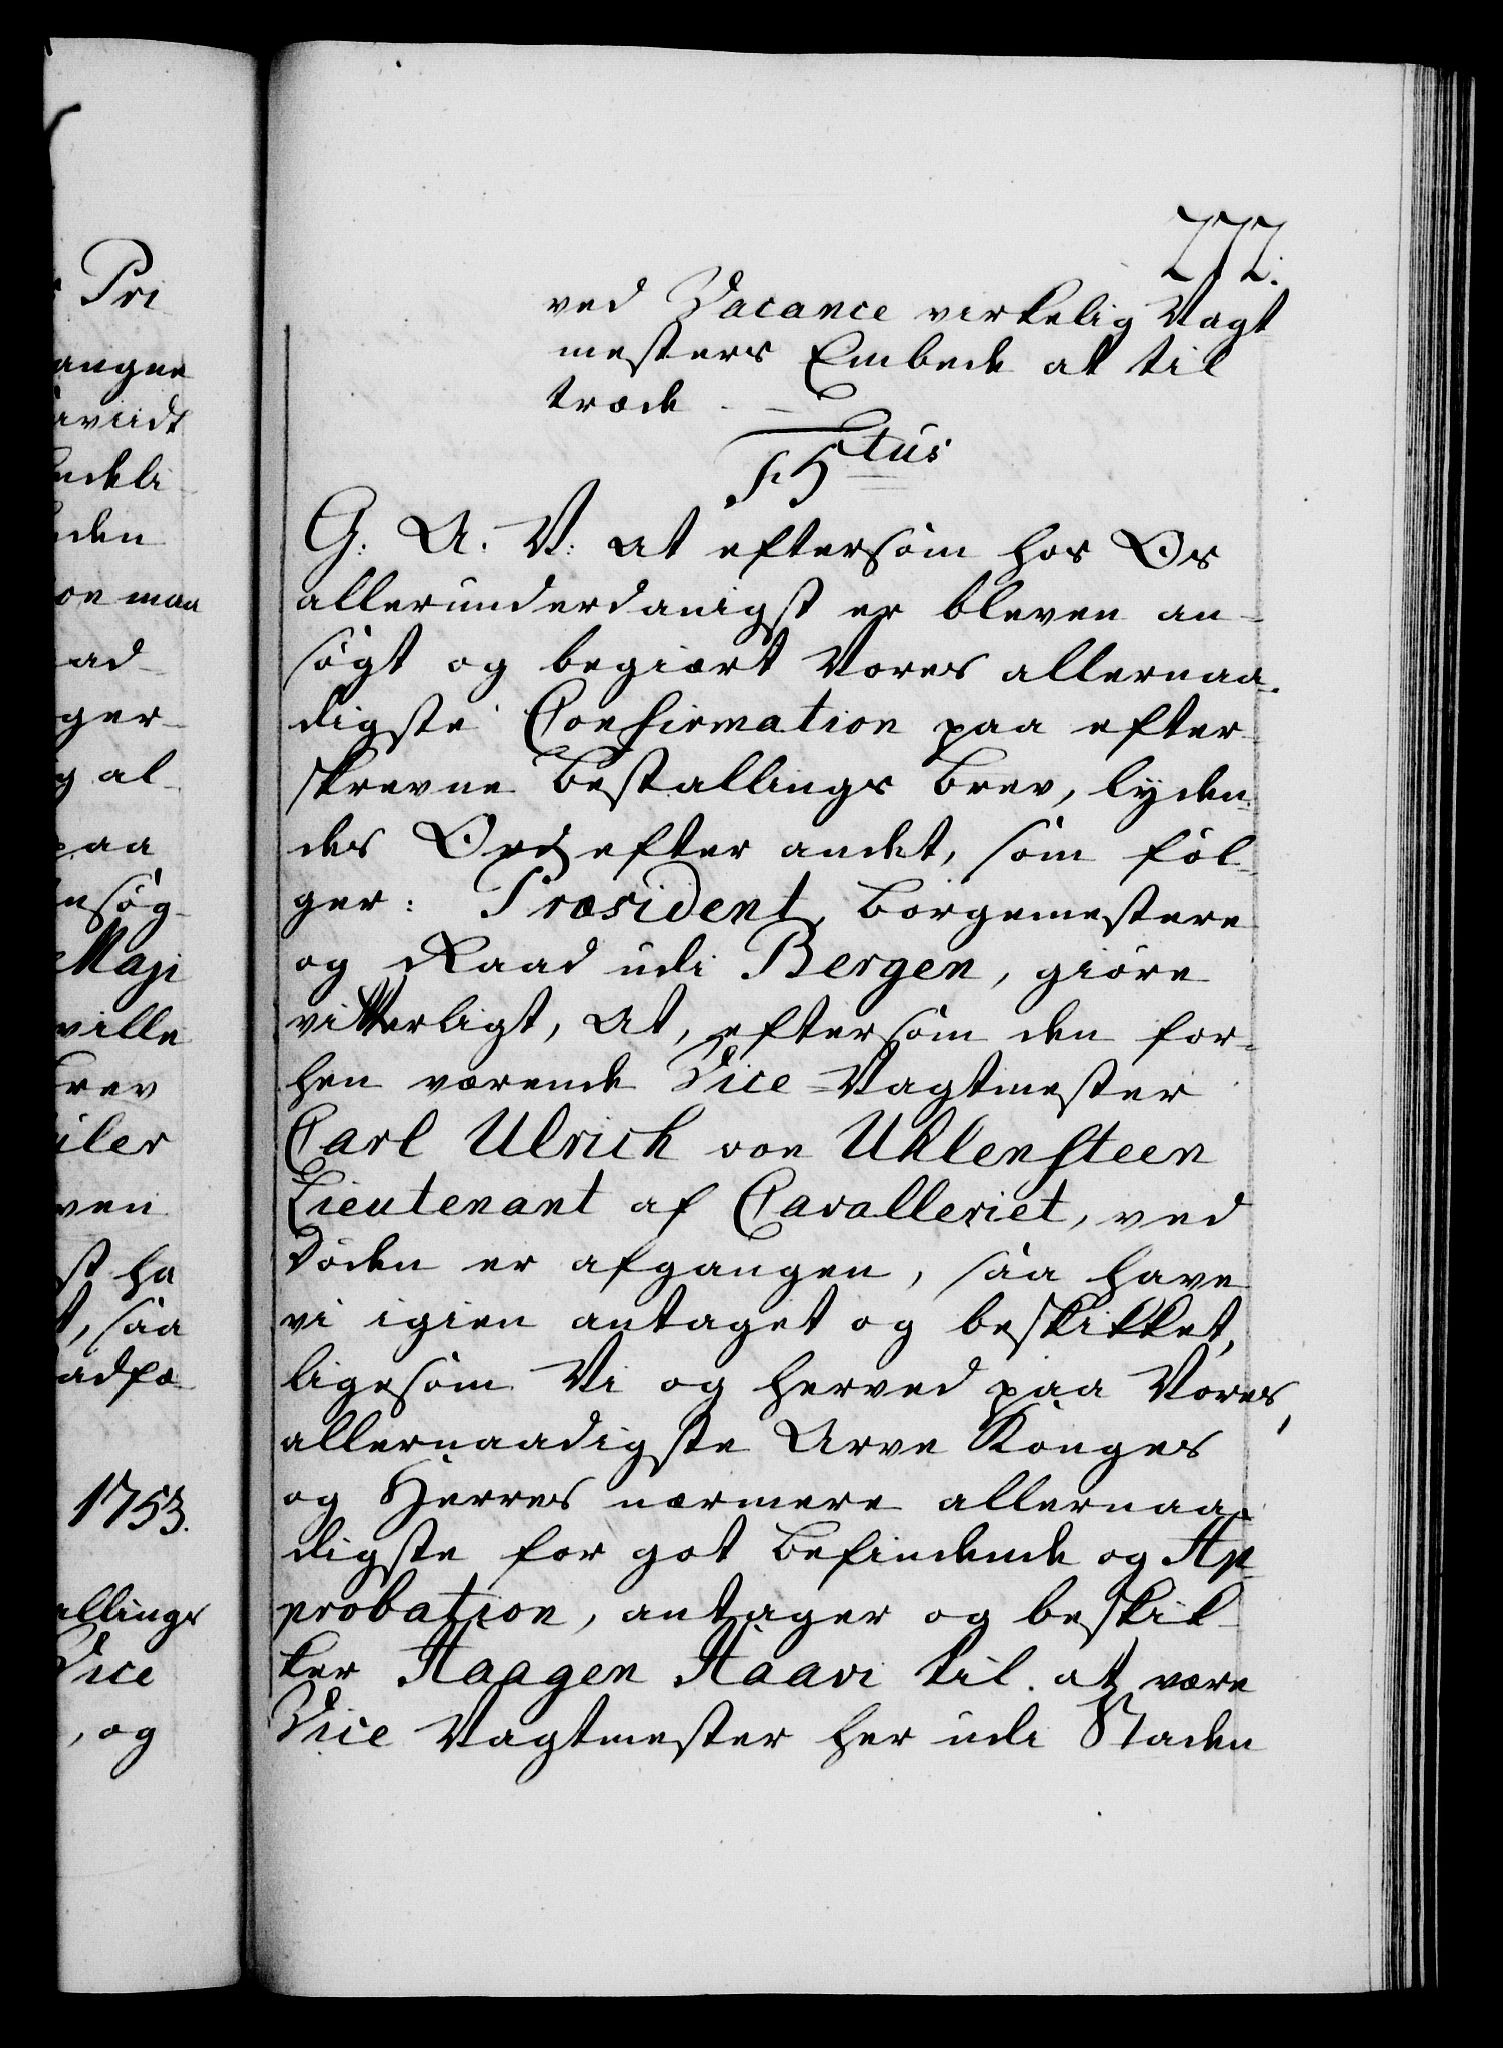 277.
ved Vacance virkelig Vagt
mesters Embede at til
træde.
F 5tus
G. A. V: at eftersom hos Os
allerunderdanigst er bleven an-
søgt og begiært Vores allernaa-
digste Confirmation paa efter-
skrevne Bestallings Brev, lyden-
des Ord efter andet, som føl-
ger: Præsident, Borgemestere
og Raad udi Bergen, giøre
vitterligt, at, eftersom den for-
hen værende Vice-Vagtmester
Carl Ulrich von Uhlensteen
Lieutenant af Cavalleriet, ved
Døden er afgangen, saa have
vi igien antaget og beskikket,
ligesom Vi og herved paa Vores,
allernaadigste Arve Konges
og Herres nærmere allernaa-
digste for got befindende og Ap-
probation, antager og beskik-
ker Haagen Haavi til at være
Vice Vagtmester her udi Staden
Pri
angne
aviidt
endeli-
den
on maa
ad-
ger-
g al-
paa
nsøg-
Maji
ville
brev
iler
ven
st ha
t, saa
1753.
allings
Vice
, og